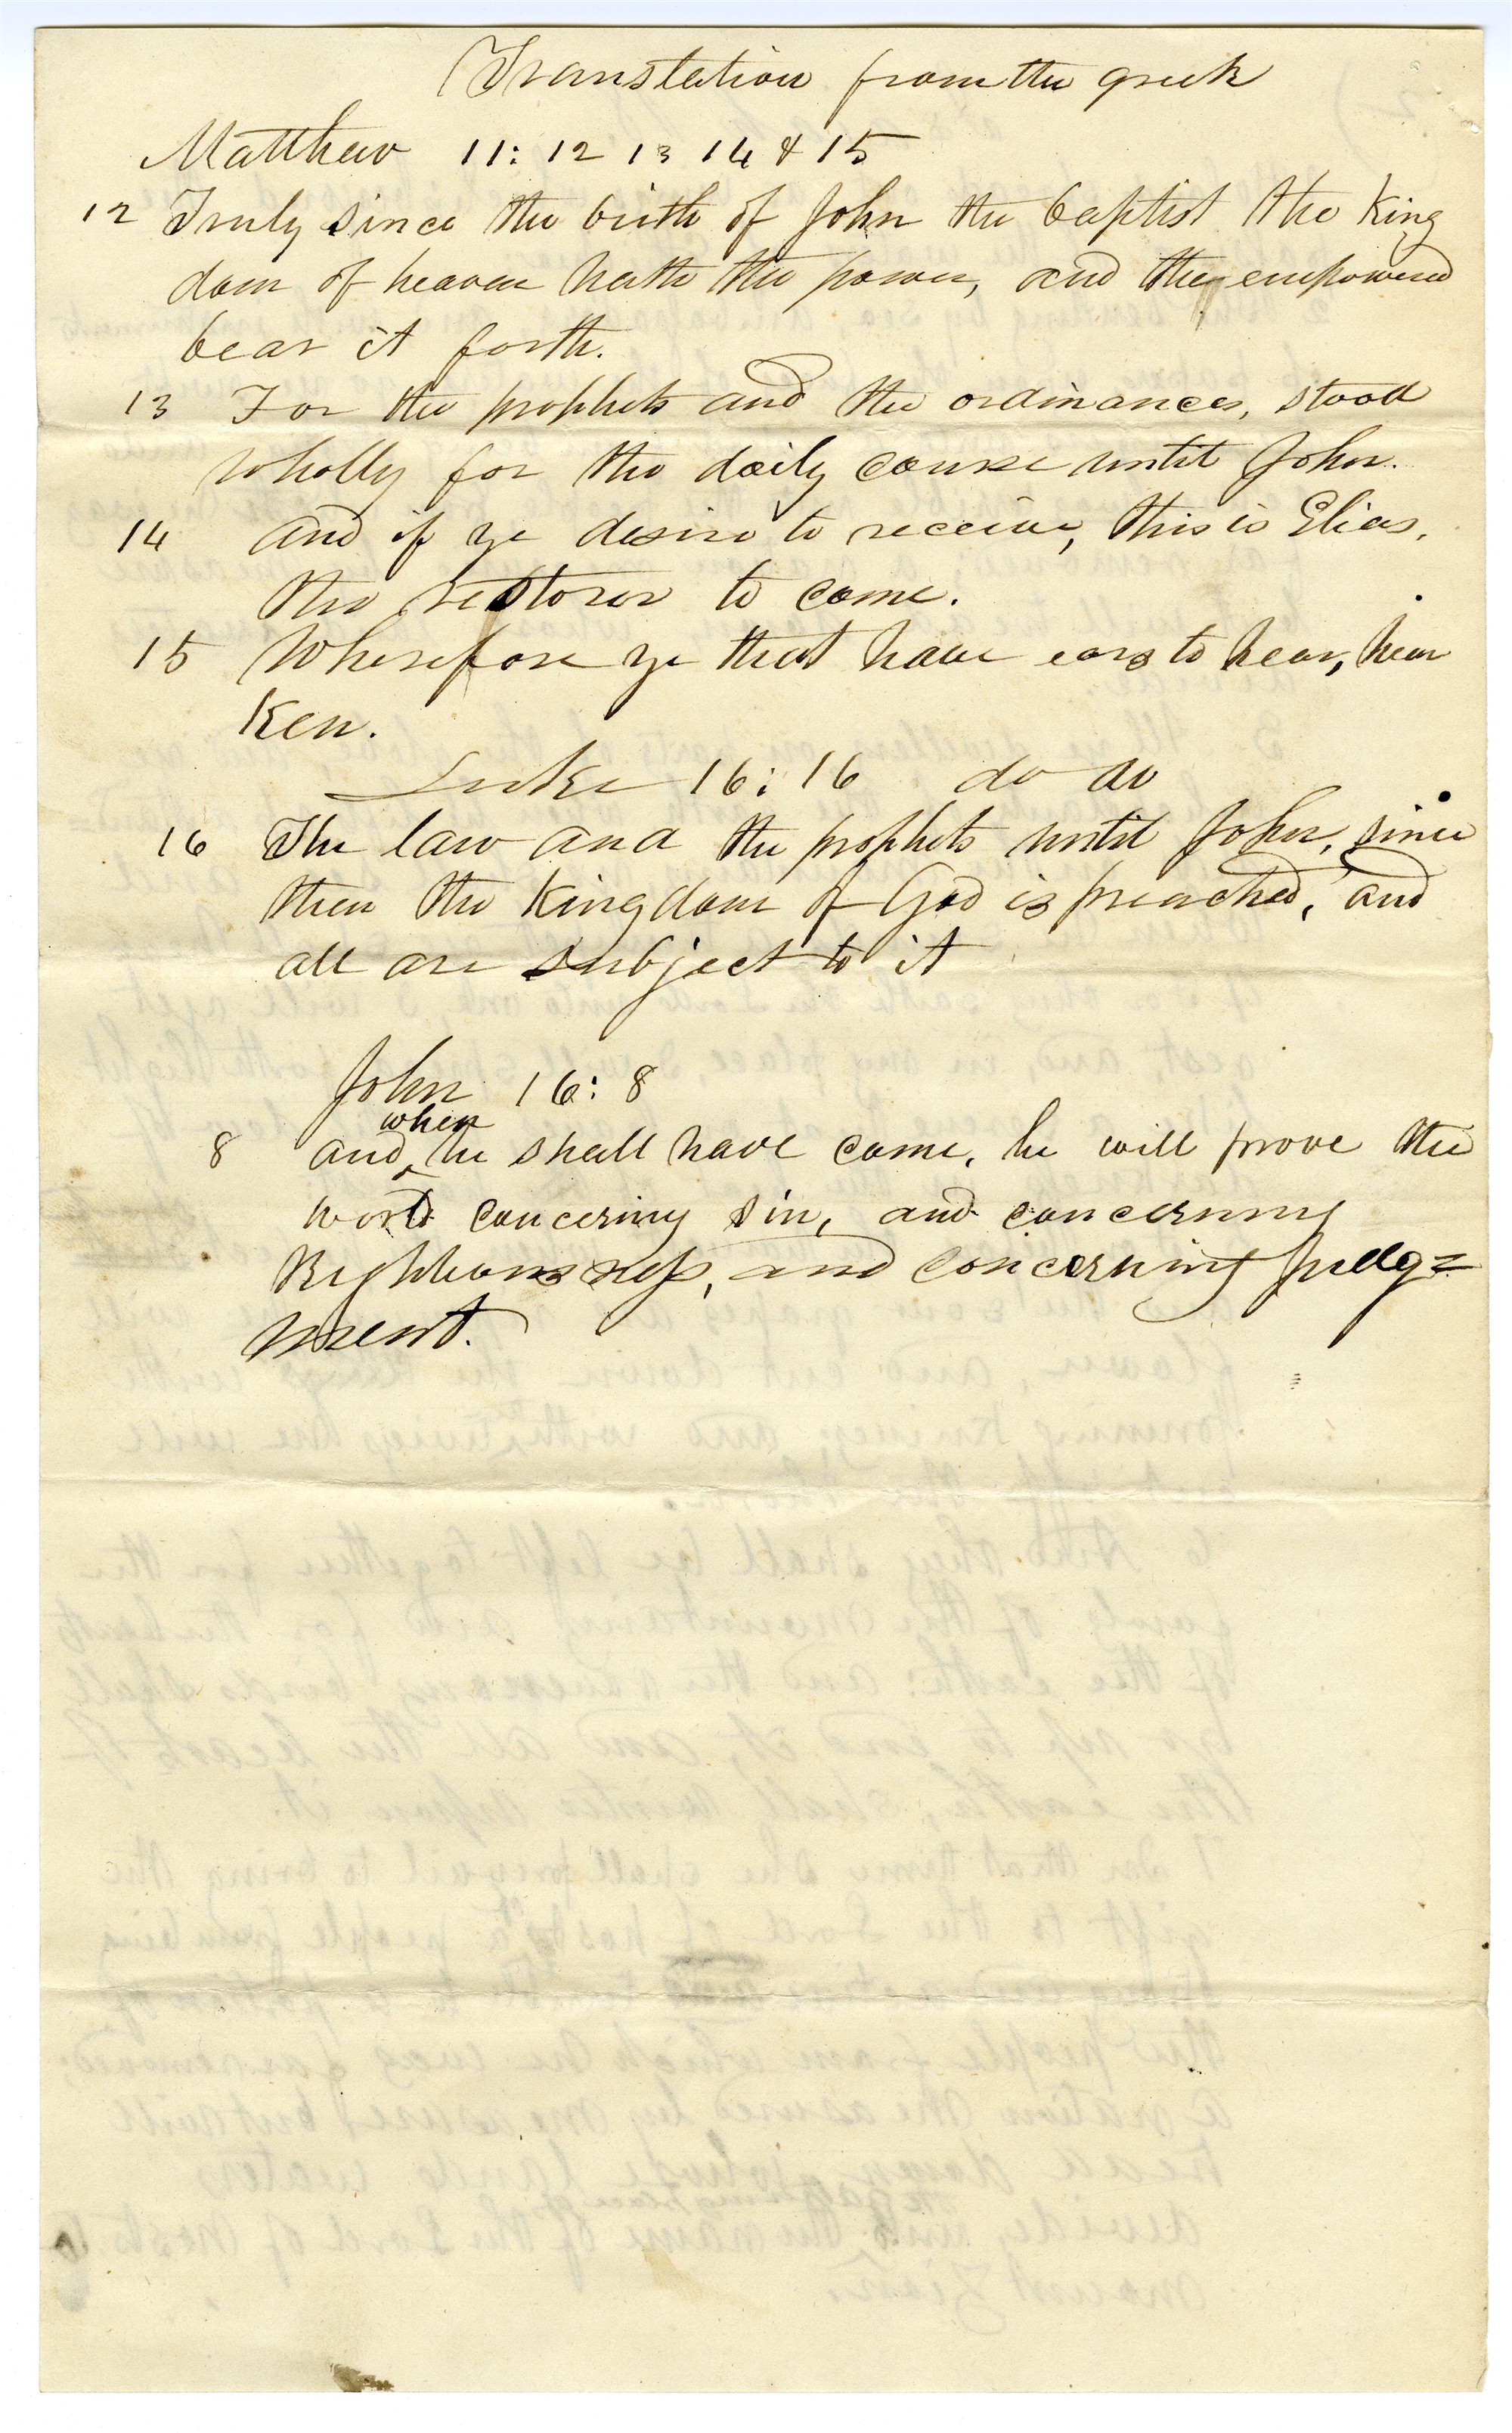 Translation from the greek
Matthew 11: 12 13 14 & 15
12 Truly since the birth of John the baptist the King
dom of heaven hath the power, and the empowered
bear it forth.
13 For the prophets and the ordinances, stood
wholly for the daily course until John.
14 and if ye desire to receive, this is Elias,
the restorer to come.
15 Wherefore ye that have ears to hear, hear
Ken.
Luke 16: 16 do do
16 The law and the prophets until John, since
then the Kingdom of God is preached, and
all are subject to it
John 16: 8
8 and when he shall have come, he will prove the
world concerning sin, and concerning
Righteousness, and concerning judg=
ment.